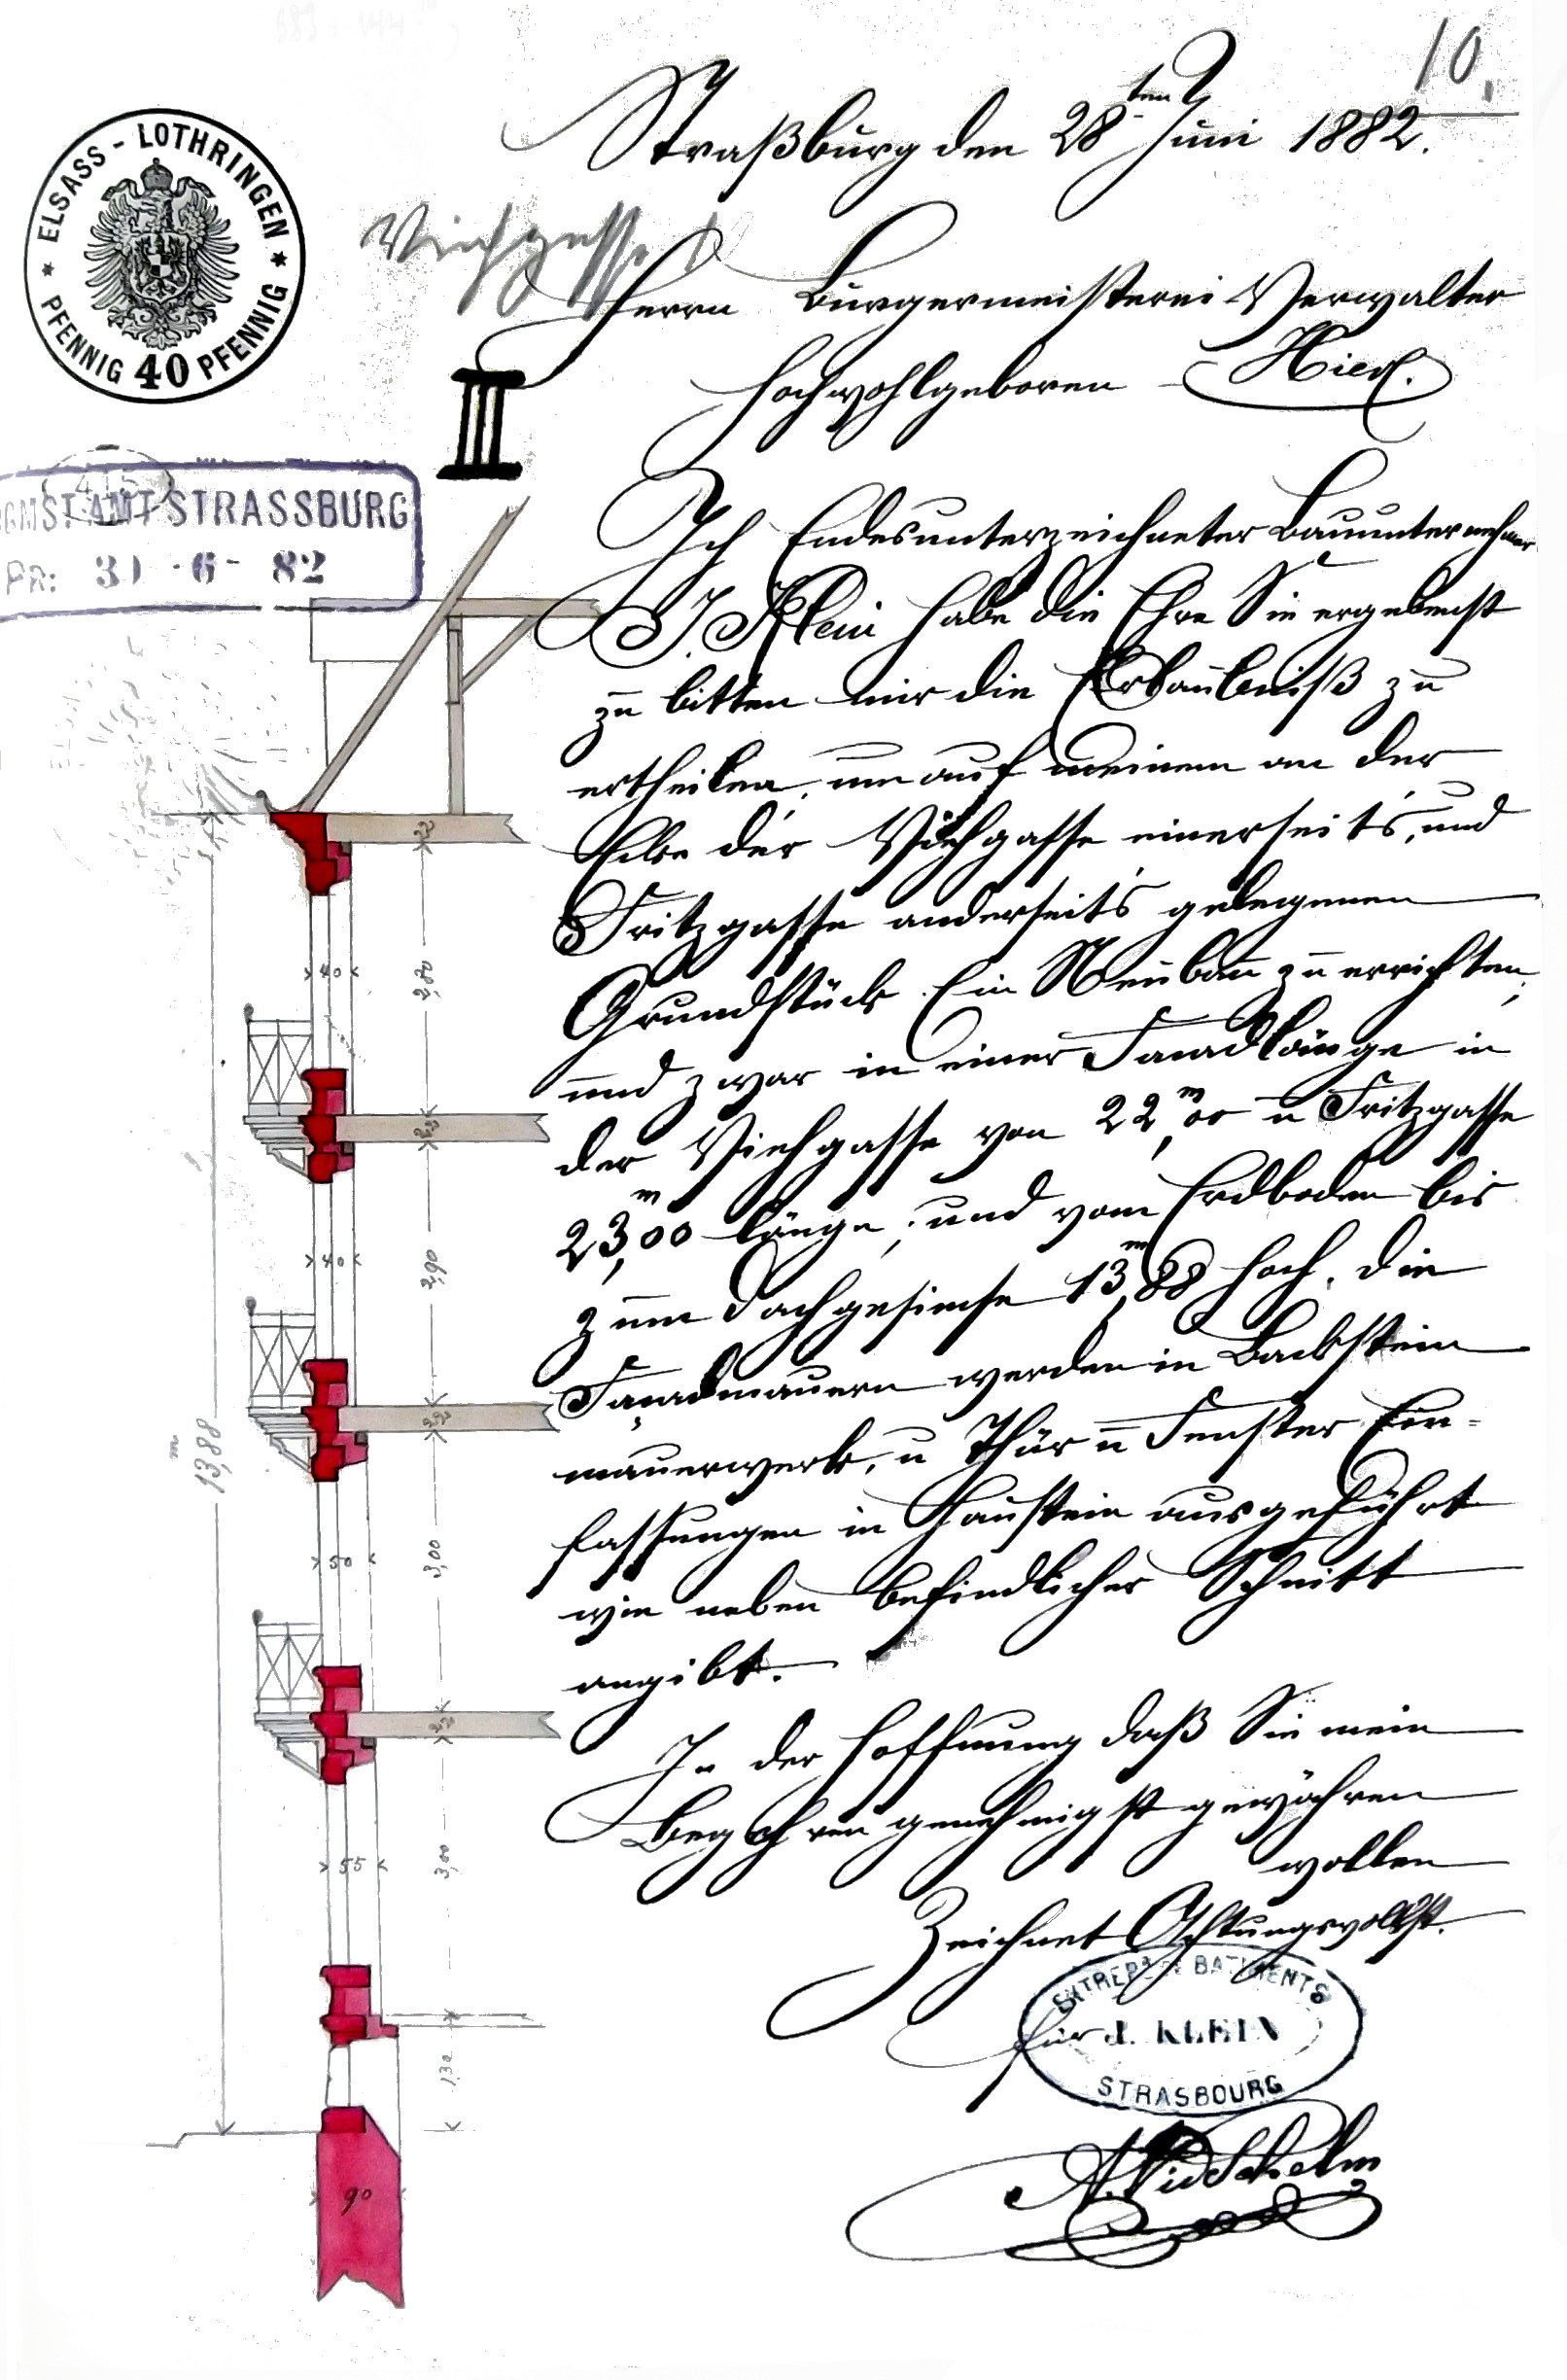 10.
Straßburg den 28ten Juni 1882.
ELSASS - LOTHRINGEN
PFENNIG 40 PFENNIG
Viehgasse
Herrn Bürgermeisterei Verwalter
Hochwohlgeboren Hier.
III
STRASSBURG
PR: 30 -6- 82
Ich Endesunterzeichneter Bauunternehmer
J. Klein habe die Ehre Sie ergebenst
zu bitten mir die Erlaubniß zu
ertheilen, um auf meinem an der
Ecke der Viehgasse einerseits, und
Fritzgasse anderseits gelegenen
Grundstück Ein Neubau zu errichten,
und zwar in einer Facadlänge in
der Viehgasse von 22,m00 u Fritzgasse
23,m00 länge; und vom Erdboden bis
zum Dachgesimse 13,m88 hoch. die
Facadmauern werden in Backstein
mauerwerk, u Thür u Fenster Ein=
fassungen in Haustein ausgeführt
wie neben befindlicher Schnitt
angibt.
In der Hoffnung daß Sie mein
Begehren genehmigst gewähren
wollen
Zeichnet Achtungsvollst.
für
ENTREPR DE BATIMENTS
J. KLEIN
STRASBOURG
22
40
2,80
22
40
2,90
22
13,88 m
50
3,00
22
55
3,00
1,30
90